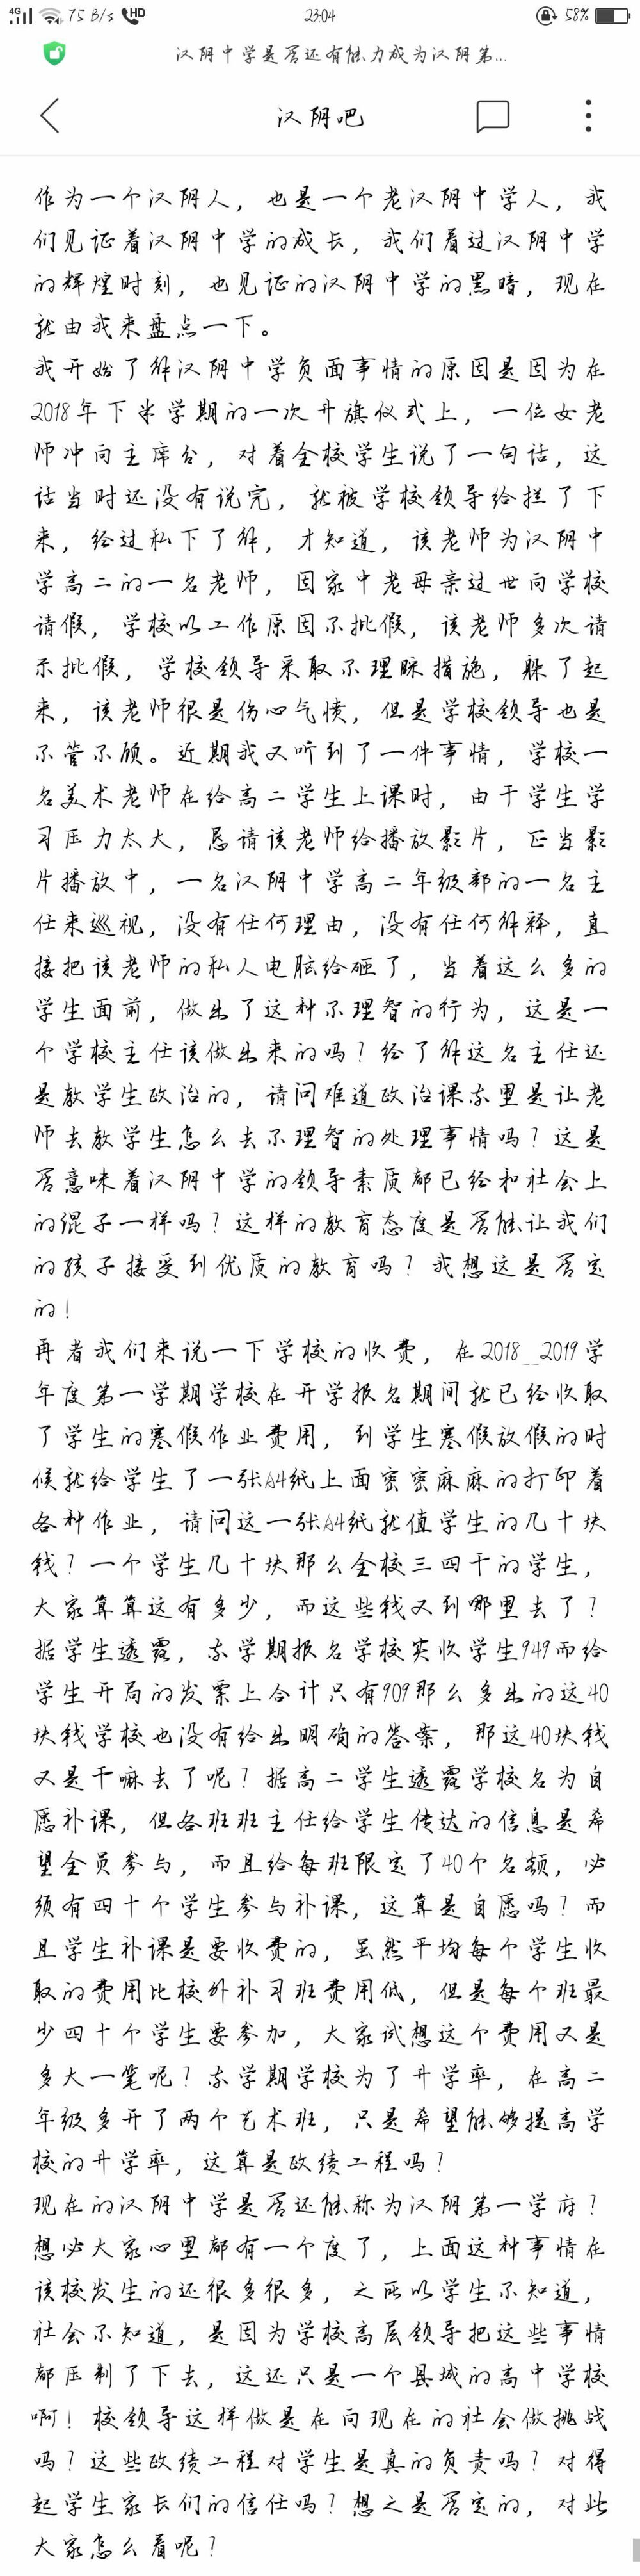 4G 75 B/s HD 23:04 58%
汉阴中学是否还有能力成为汉阴第...
汉阴吧
作为一个汉阴人，也是一个老汉阴中学人，我
们见证着汉阴中学的成长，我们看过汉阴中学
的辉煌时刻，也见证的汉阴中学的黑暗，现在
就由我来盘点一下。
我开始了解汉阴中学负面事情的原因是因为在
2018年下半学期的一次升旗仪式上，一位女老
师冲向主席台，对着全校学生说了一句话，这
话当时还没有说完，就被学校领导给拦了下
来，经过私下了解，才知道，该老师为汉阴中
学高二的一名老师，因家中老母亲过世向学校
请假，学校以工作原因不批假，该老师多次请
示批假，学校领导采取不理睬措施，躲了起
来，该老师很是伤心气愤，但是学校领导也是
不管不顾。近期我又听到了一件事情，学校一
名美术老师在给高二学生上课时，由于学生学
习压力太大，恳请该老师给播放影片，正当影
片播放中，一名汉阴中学高二年级部的一名主
任来巡视，没有任何理由，没有任何解释，直
接把该老师的私人电脑给砸了，当着这么多的
学生面前，做出了这种不理智的行为，这是一
个学校主任该做出来的吗？经了解这名主任还
是教学生政治的，请问难道政治课本里是让老
师去教学生怎么去不理智的处理事情吗？这是
否意味着汉阴中学的领导素质都已经和社会上
的混子一样吗？这样的教育态度是否能让我们
的孩子接受到优质的教育吗？我想这是否定
的！
再者我们来说一下学校的收费，在2018__2019学
年度第一学期学校在开学报名期间就已经收取
了学生的寒假作业费用，到学生寒假放假的时
候就给学生了一张A4纸上面密密麻麻的打印着
各种作业，请问这一张A4纸就值学生的几十块
钱？一个学生几十块那么全校三四千的学生，
大家算算这有多少，而这些钱又到哪里去了？
据学生透露，本学期报名学校实收学生949而给
学生开局的发票上合计只有909那么多出的这40
块钱学校也没有给出明确的答案，那这40块钱
又是干嘛去了呢？据高二学生透露学校名为自
愿补课，但各班班主任给学生传达的信息是希
望全员参与，而且给每班限定了40个名额，必
须有四十个学生参与补课，这算是自愿吗？而
且学生补课是要收费的，虽然平均每个学生收
取的费用比校外补习班费用低，但是每个班最
少四十个学生要参加，大家试想这个费用又是
多大一笔呢？本学期学校为了升学率，在高二
年级多开了两个艺术班，只是希望能够提高学
校的升学率，这算是政绩工程吗？
现在的汉阴中学是否还能称为汉阴第一学府？
想必大家心里都有一个度了，上面这种事情在
该校发生的还很多很多，之所以学生不知道，
社会不知道，是因为学校高层领导把这些事情
都压制了下去，这还只是一个县城的高中学校
啊！校领导这样做是在向现在的社会做挑战
吗？这些政绩工程对学生是真的负责吗？对得
起学生家长们的信任吗？想之是否定的，对此
大家怎么看呢？